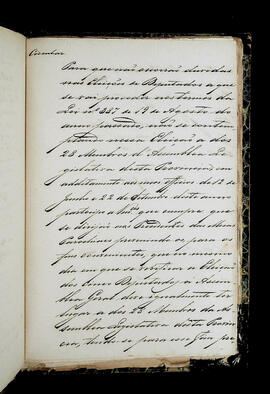 Circular
Para que não occorrão duvidas
nas Eleições de Deputados a que
se vai proceder nos termos da
Lei nº 387 de 19 de Agosto do
anno passado, não se contem
plando nessa Eleição a dos
28 Membros d'Assemblea Le
gislativa desta Provincia; em
additamento aos meus officios de 12 de
Junho e 22 de Setembro deste anno
participo a que cumpre, que
se dirija aos Presidentes das Mesas
Parochiaes prevenindo os para o
fim conveniente, que no mesmo
dia em que se verificar a Eleição
dos Deputados a Assem
blea Geral deve igualmente ter
lugar a dos 28 Membros da As
semblea Legislativa desta Provin
cia, tendo-se para esse fim pre